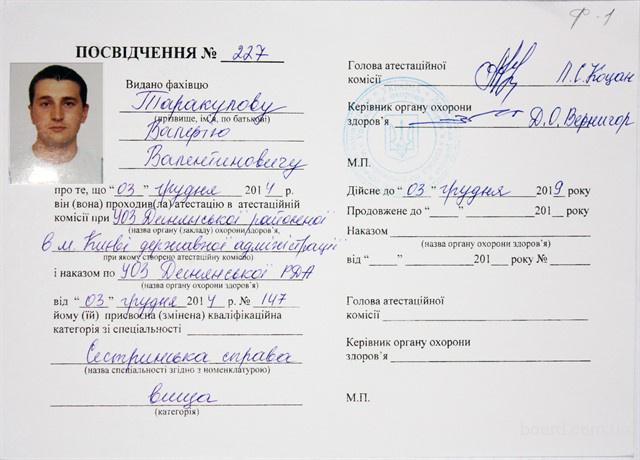 ф-1
ПОСВІДЧЕННЯ № 227
Видано фахівцю
Таракулову
(прізвище, ім'я, по батькові)
Валерію
Валентиновичу
про те, що "03" грудня 2014 р.
він (вона) проходив(ла) атестацію в атестаційній
комісії при УОЗ Деснянської районної
(назва органу (закладу) охорони здоров'я,
в м. Києві державної адміністрації
при якому створено атестаційну комісію)
і наказом по УОЗ Деснянської РДА
(назва органу охорони здоров'я)
від "03" грудня 2014 р. № 147
йому (їй) присвоєна (змінена) кваліфікаційна
категорія зі спеціальності
Сестринська справа
(назва спеціальності згідно з номенклатурою)
вища
(категорія)
Голова атестаційної
комісії Л.С.Коцан
Керівник органу охорони
здоров'я Д.О.Вернигор
М.П.
Дійсне до "03" грудня 2019 року
Продовжено до "___" 201__ року
Наказом
(назва органу охорони здоров'я)
від "___" 201__ року №
Голова атестаційної
комісії
Керівник органу охорони
здоров'я
М.П.
board.com.ua